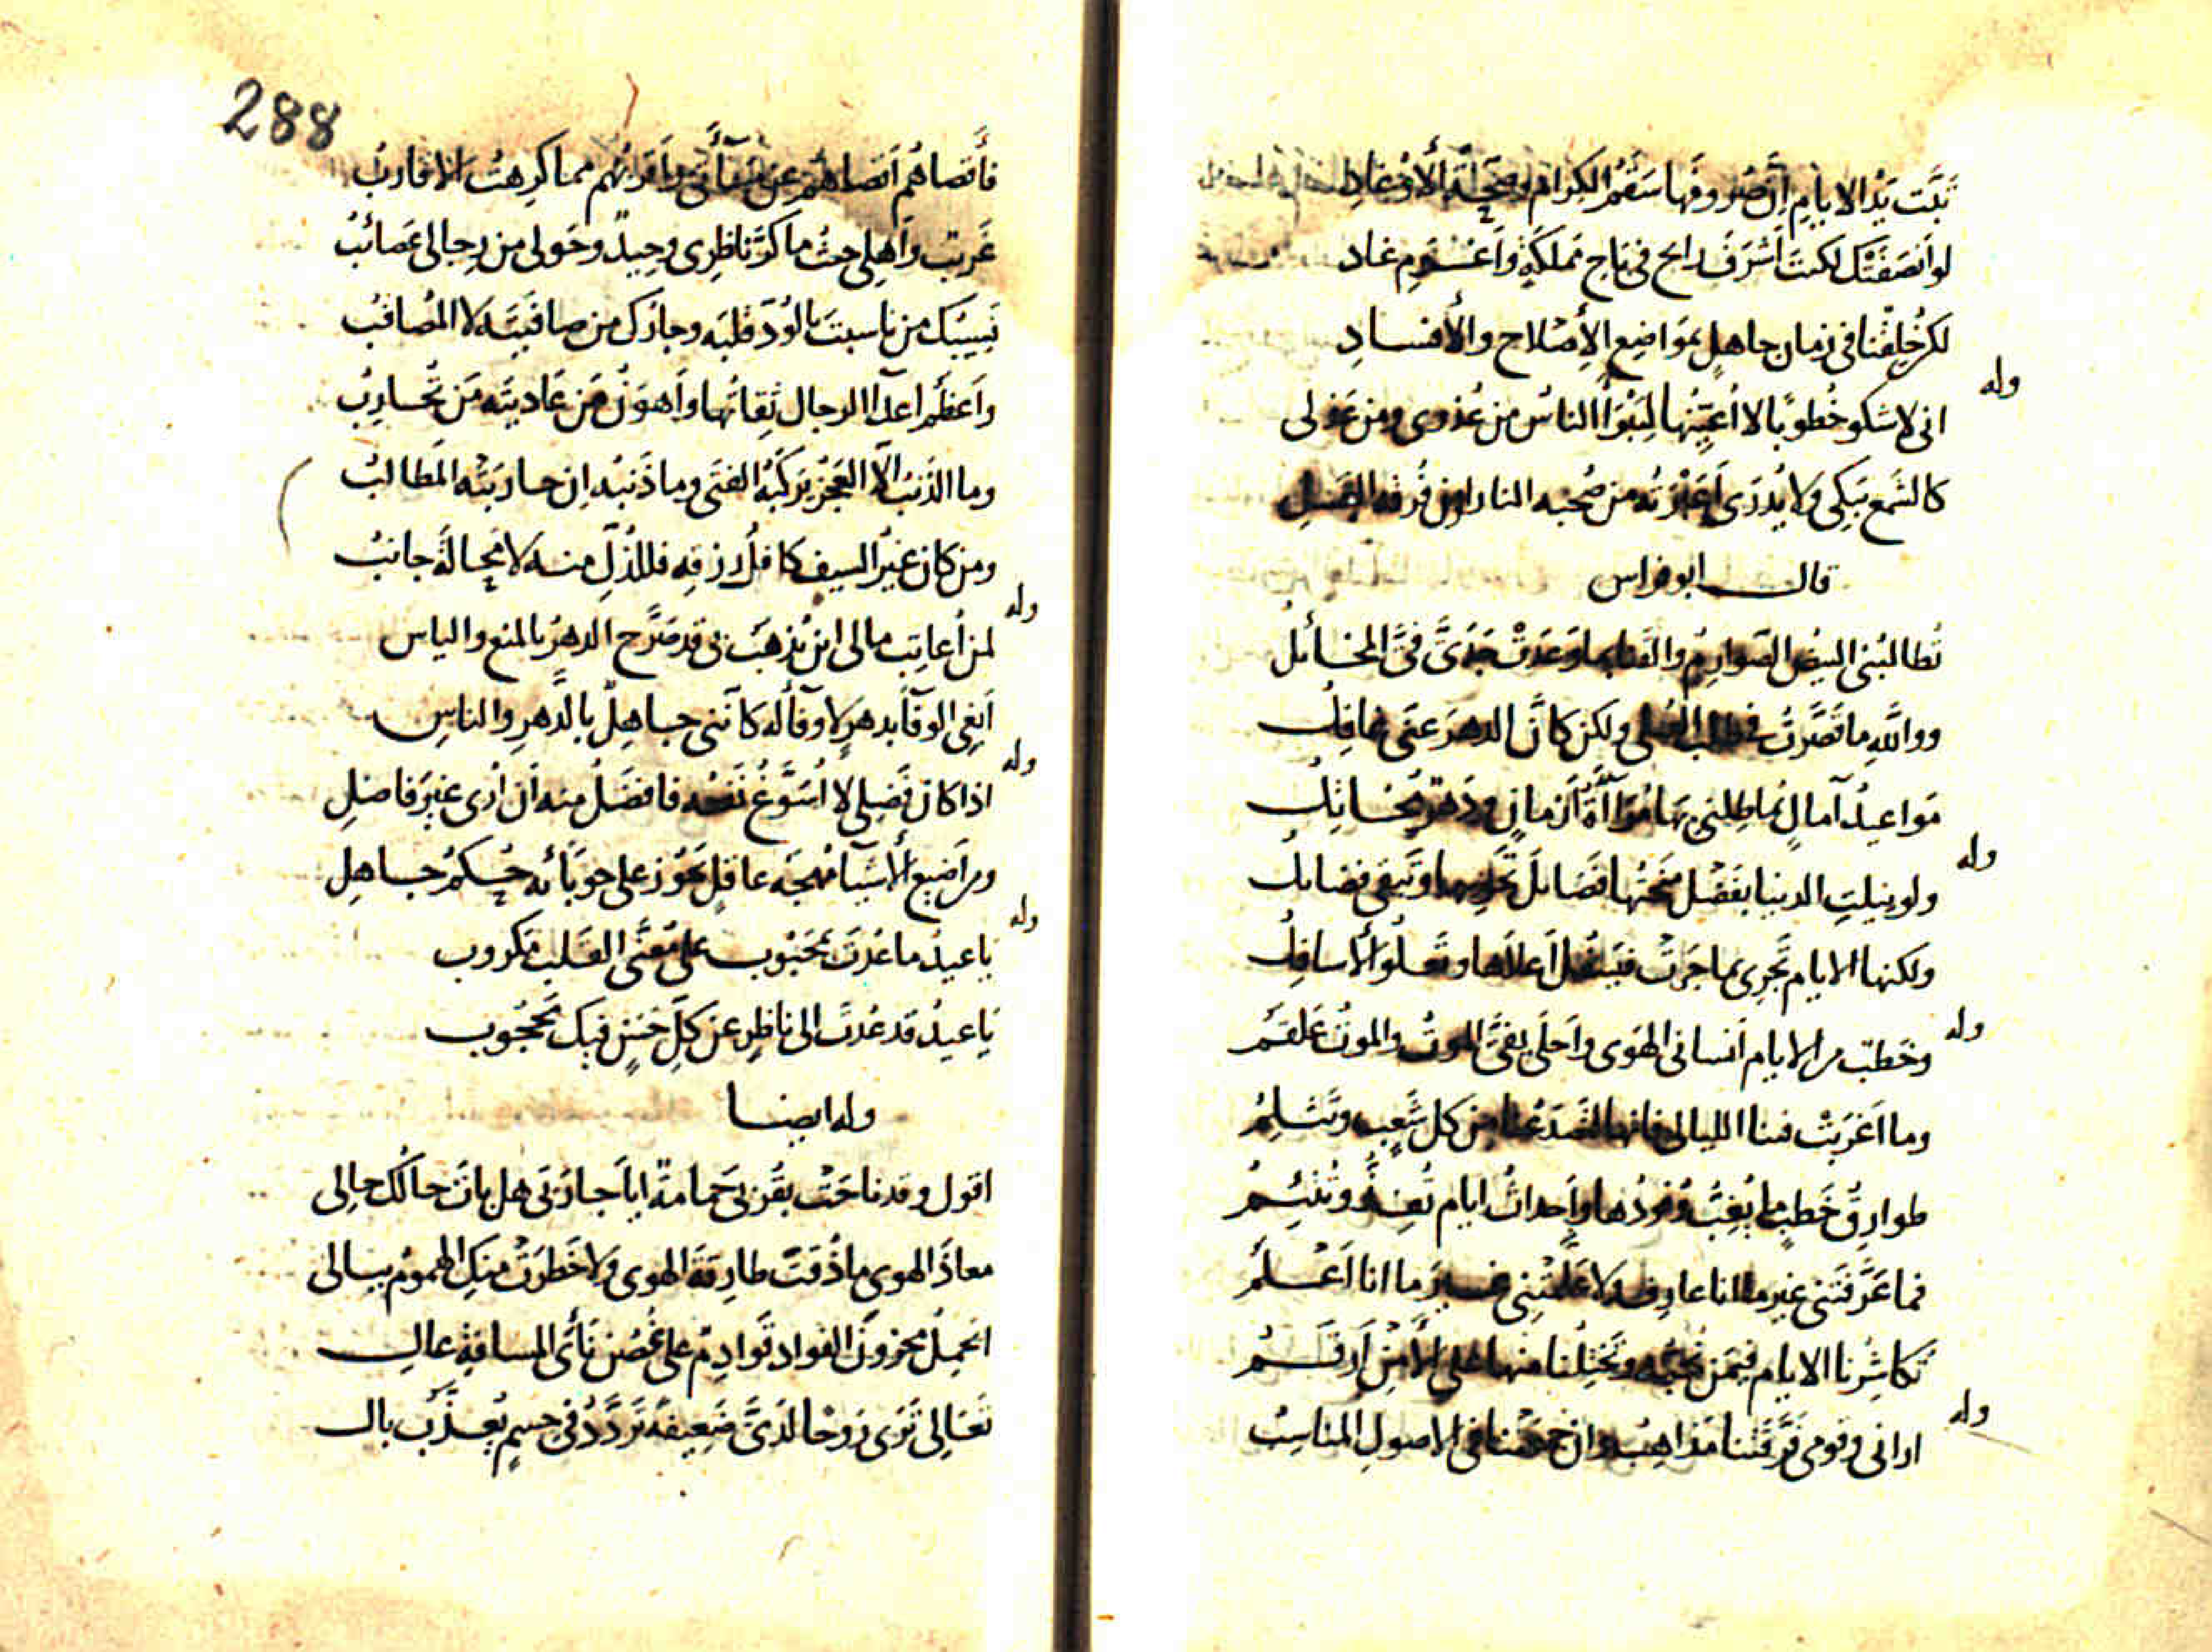 تَبَّت يَدُ الايامِ اِنَّ صُروفَها سَقَمُ الكِرام وصِحَّةُ الأَوْغادِ
لو اَنصَفَتْكَ لكنتَ اَشرَفَ رايح في تاج مَملَكَةٍ واَكرَم غاد
لكن خُلِقْنا في زمان جاهلٍ بمَواضِع الأِصلاح والأِفسادِ
وله
اني لاشكو خُطوبًا لا اُعيّنُها لِيَبْرَأَ الناسُ من عُذري ومن عَذلي
كالشَمع يَبكي ولا يُدرَى اَعَبْرَتُه من صُحبَه النار اومن فُرقه العَسَلِ
قال ابو فراس
تُطالبُني البيضُ الصَوارِمُ والقَنا بما وَعَدَتْ جَدَّيَّ فيَّ المخائلُ
وواللَّهِ ما قَصَّرتُ في طلب العُلى ولكن كانَّ الدهرَ عنّي غافِلُ
مَواعيدُ آمالٍ تُماطِلني بها مُرَاآةُ ازمانٍ ودَهرٌ مُخاتِلُ
وله
ولو نيلتِ الدنيا بفَضْل مَنَحتُها فَضَايلَ تَحويها وتَبقى فضايل
ولكنها الايام تَجرِي بما جَرَتْ فيَسْفُلُ اَعلاها وتَعلُو الأَسافِلُ
وله
وخَطبٌ من الايام اَنساني الهَوى واَحلَى بفيَّ الموتُ والموتُ عَلقَم
وما اَغرَبَتْ فينا الليالي فانها لتَصدَعُنا من كل شَعبٍ وتَثلِمُ
طوارِقُ خَطبٍ ما يُغِبُّ وُفودُها واَحداثُ ايام تُغِذُّ وتُتئِمُ
فما عَرَّفَتني غيرَ ما انا عارِف ولا عَلَّمَتني غيرَ ما انا اَعلَمُ
تُكاشِرُنا الايام فيمَن نُحِبّه وتَختِلُنا منها على الأَمْنِ اَرقَمُ
وله
اراني وقومي فَرَّقَتنا مَذاهِبُ وان جمعتنا في الاصولِ المناسِبُ
288
فأَقصاهُم اَقصاهُم عن مَسآأَتي واَقربُهم مما كرِهتُ الاقاربُ
غَريبٌ واَهلِي حيثُ ما كَرَّ ناظِري وحِيدٌ وحَولي من رجالي عَصائبُ
نَسِيبُكَ من ناسبتَ بالوُدّ قلبَه وجارُكَ من صافَيتَه لا المُصاقبُ
واَعظَمُ اعدآا الرجال ثِقاتُها واَهوَنُ مَن عَاديتَه مَن تُحارِبُ
وما الذَنبُ الّا العَجزُ يَركَبُه الفتَى وما ذَنبُه اِن حاربَتْه المَطالبُ
ومن كان غيرُ السيف كافلَ رزقِه فللذُلّ منه لا مَحالةَ جانبُ
وله
لمن اُعاتِب مالي اين يُذهَب بي قد صَرَّح الدهرُ بالمنع والياس
اَبغِي الوفآَ بدهرٍ لا وفآَ له كاَنّني جاهِلٌ بالدَّهرِ والناسِ
وله
اذا كان فَضلِي لا اُسَوَّغُ نَفعَه فافضَلُ منه اَن اُرَى غيرَ فاضلِ
ومن اَضيع الأَشيآا مُهجَه عاقل يَجُوز على حوبَائه حُكمُ جاهِلِ
وله
يا عيدُ ما عُدتَ بمَحبُوب على مُعَنَّى القَلب مَكروب
يا عيدُ قد عُدتَ الى ناظِرٍ عَن كلِّ حُسنٍ فيكَ مَحجُوب
وله ايضا
اقول وقد ناحَتْ بقُربي حَمامةٌ ايا جارَتي هل بات حالُك حالي
معاذَ الهوى ما ذُقتِ طارِقةَ الهوى ولا خَطَرَتْ منكِ الهُمومُ ببالي
اتحمِلُ محزونَ الفواد قَوادِمٌ على غُصُن نَأَى المسافةِ عالِ
تَعَالي تَرَى رُوحًا لدَيَّ ضَعِيفةً تَرَدَّدُ في جسمٍ يُعذَّبُ بال